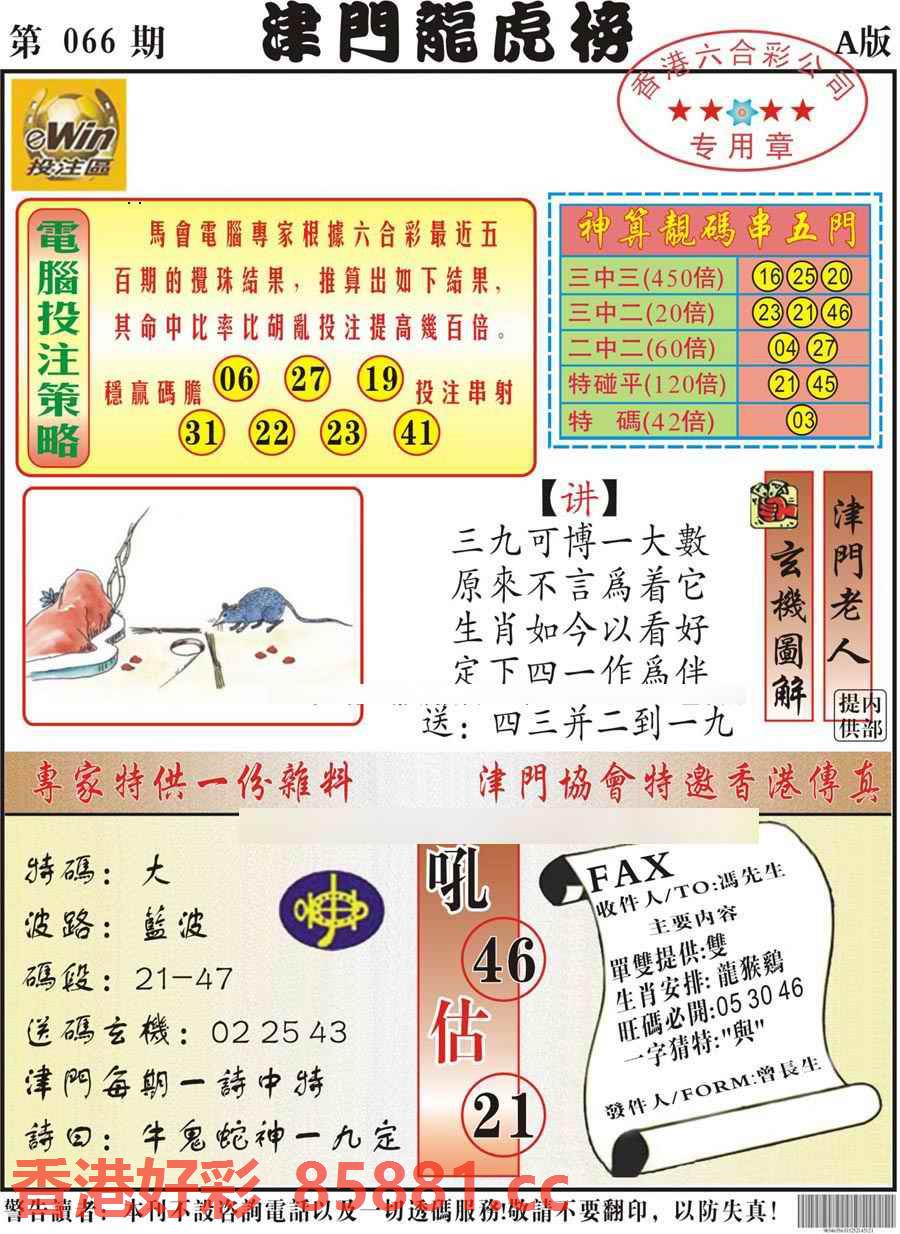 第 066 期
津門龍虎榜
A版
香港六合彩公司
专用章
eWin
投注區
電腦投注策略
馬會電腦專家根據六合彩最近五
百期的攪珠結果，推算出如下結果，
其命中比率比胡亂投注提高幾百倍。
穩贏碼膽 06 27 19 投注串射
31 22 23 41
神算靚碼串五門
三中三(450倍) 16 25 20
三中二(20倍) 23 21 46
二中二(60倍) 04 27
特碰平(120倍) 21 45
特 碼(42倍) 03
【讲】
三九可博一大數
原來不言爲着它
生肖如今以看好
定下四一作爲伴
送：四三并二到一九
玄機圖解
津門老人
内部提供
專家特供一份雜料
津門協會特邀香港傳真
特碼：大
波路：藍波
碼段：21—47
送碼玄機：02 25 43
津門每期一詩中特
詩曰：牛鬼蛇神一九定
吼
46
估
21
FAX
收件人/TO:馮先生
主要内容
單雙提供:雙
生肖安排:龍猴鷄
旺碼必開:05 30 46
一字猜特:"與"
發件人/FORM:曾長生
香港好彩 85881.cc
警告讀者：本刊不設咨詢電話以及一切透碼服務!敬請不要翻印，以防失真!